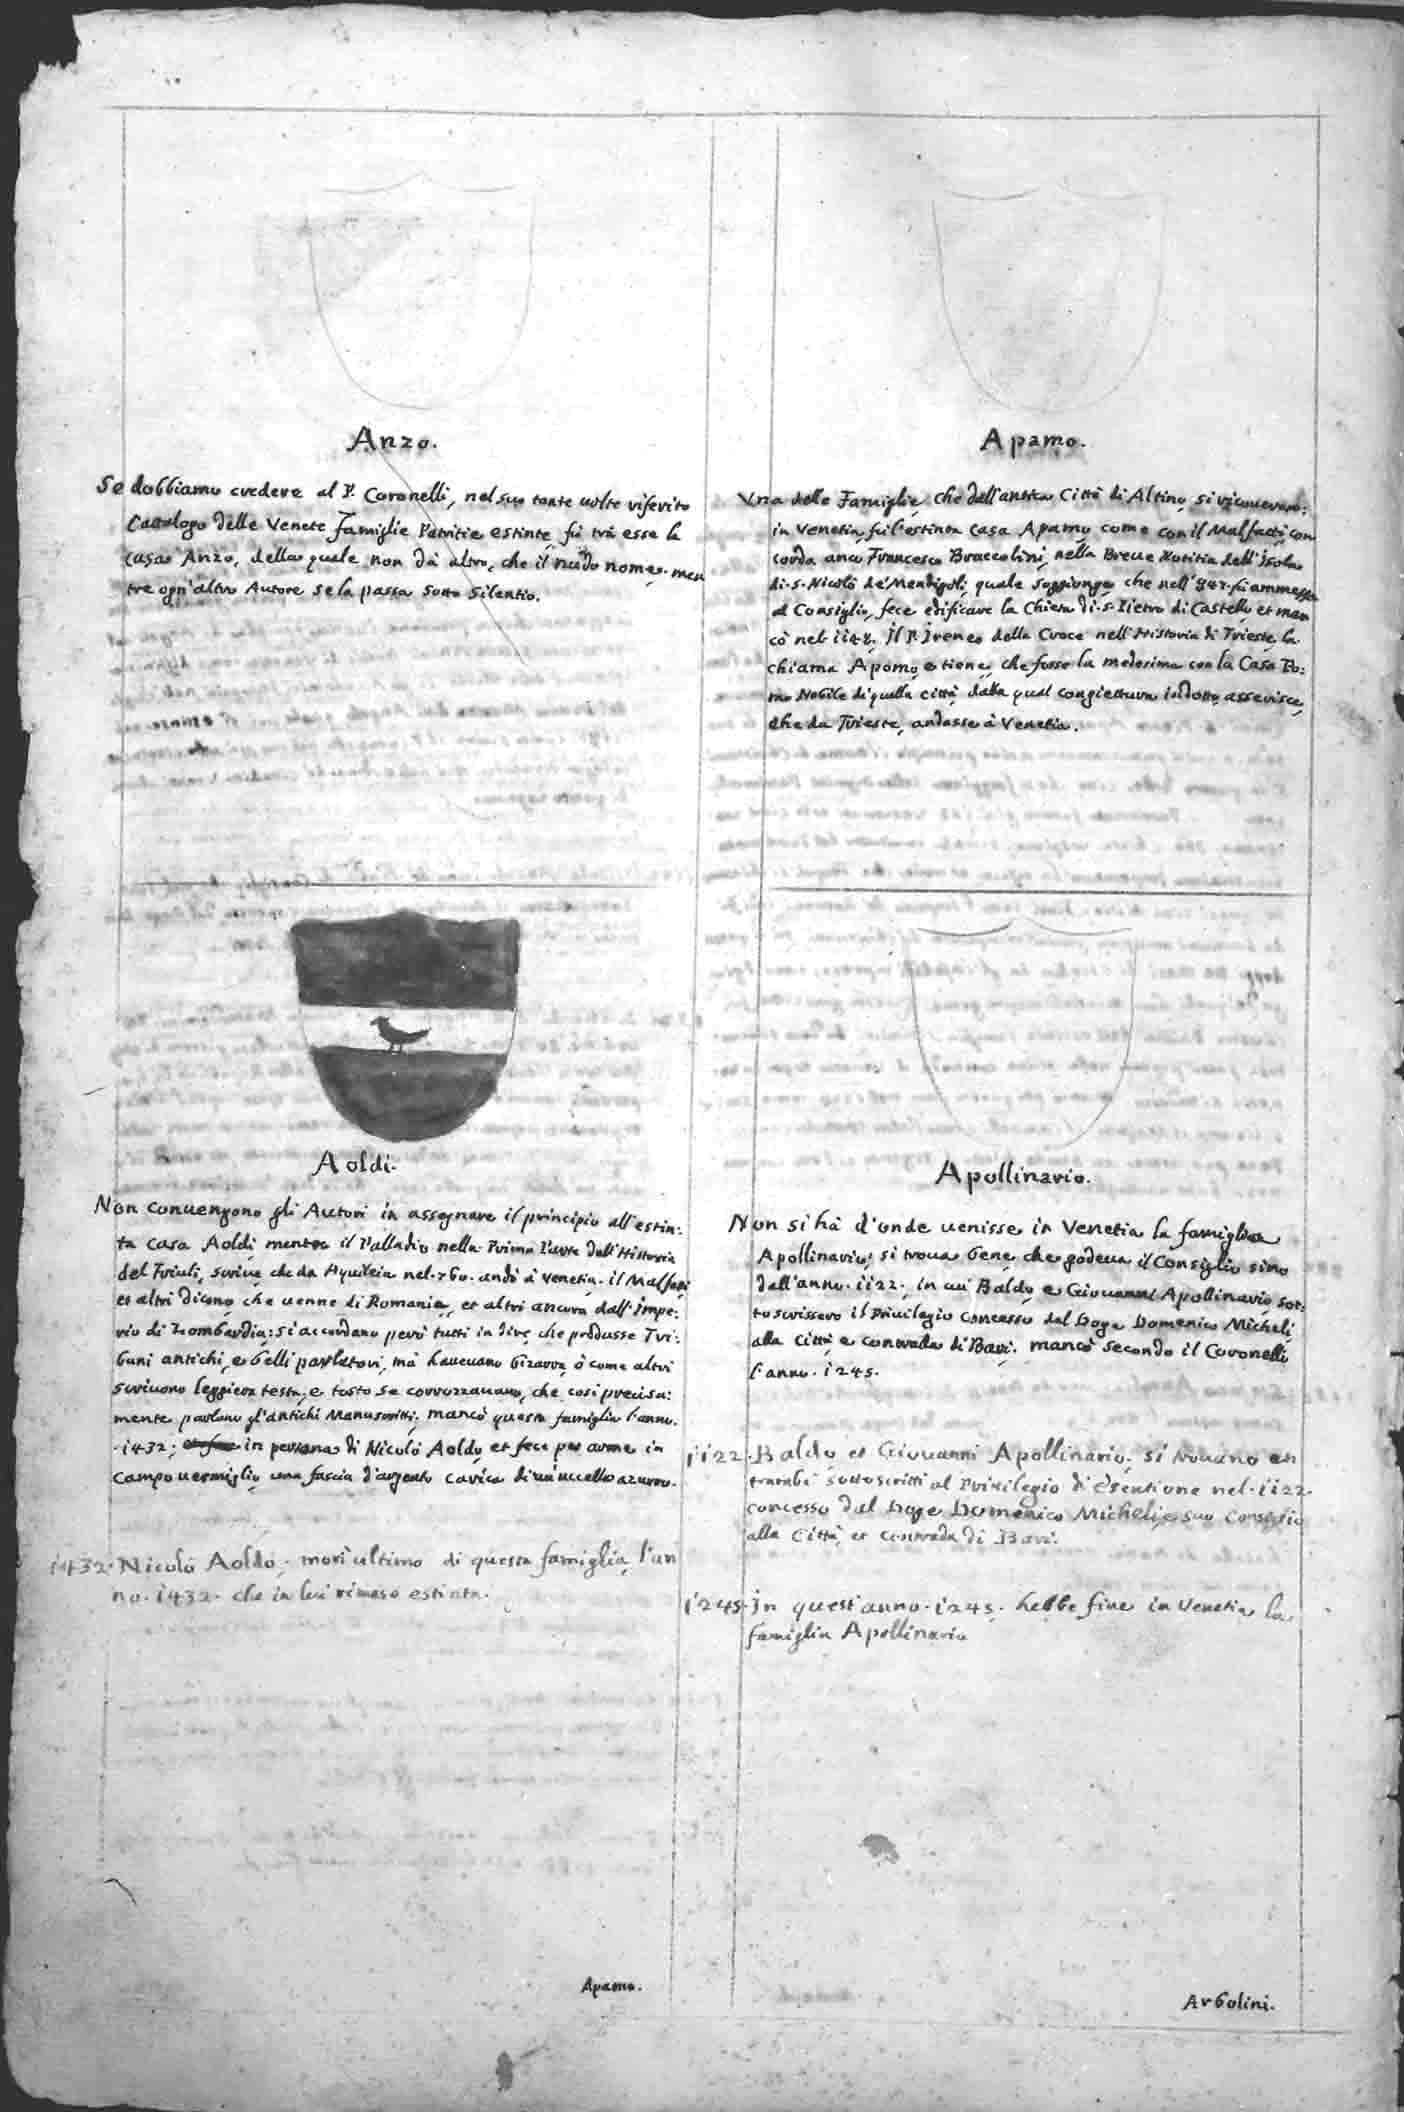 Anzo.
Se dobbiamo credere al P. Coronelli, nel suo tante uolte riferito
Cattalogo delle Venete famiglie Patritie estinte, fù trà esse la
casa Anzo, della quale non dà altro, che il nudo nome, men
tre ogn'altro Autore se la passa sotto silentio.
Aoldi.
Non conuengono gli Autori in assegnare il principio all'estin:
ta casa Aoldi mentre il Palladio nella Prima Parte dell'Historia
del Friuli, scriue che da Aquileia nel .760. andò à Venetia. il Malfatti
et altri dicono che uenne di Romania, et altri ancora dall'Impe:
rio di Lombardia: si accordano però tutti in dire, che produsse Tri:
buni antichi, e belli parlatori, mà haueuano bizarra, ò come altri
scriuono leggiera testa, e tosto se corrozzauano, che così precisa:
mente parlano gl'antichi Manuscritti; mancò questa famiglia l'anno.
.1432; in persona di Nicolò Aoldo, et fece per arme in
campo uermiglio una fascia d'argento carica di un'uccello azurro.
1432. Nicolò Aoldo, morì ultimo di questa famiglia, l'an
no .1432. che in lui rimase estinta.
Apamo.
Apamo.
Vna delle Famiglie, che dall'antica Città di Altino, si ricouerarono
in Venetia, fù l'estinta casa Apamo, come con il Malfatti, con
corda anco Francesco Braccolini, nella Breue Notitia dell'Isola
di .S. Nicolò de' Mendigoli, quale soggionge, che nell' fù ammessa
al Consiglio, fece edificare la Chiesa di .S. Pietro di Castello, et man
cò nel 1148. Il P. Ireneo della Croce nell'Historia di Trieste, la
chiama Apomo, e tiene, che fosse la medesima con la Casa Bo:
mo Nobile di quella città, dalla qual congiettura indotto, asserisce,
che da Trieste, andasse à Venetia.
Apollinario.
Non si hà d'onde uenisse in Venetia la famiglia
Apollinario; si troua bene, che godeua il Consiglio sino
dall'anno .1122. in cui Baldo, e Giouanni Apollinario, sot:
toscrissero il Priuilegio concesso dal Doge Domenico Micheli,
alla Città e contrada di Bari. mancò secondo il Coronelli
l'anno .1245.
1122. Baldo, et Giouanni Apollinario, si trouano en
trambi sottoscritti al Priuilegio di Esentione nel .1122.
concesso dal Doge Domenico Micheli, e suo Consiglio
alla Città, et contrada di Bari.
1245. In quest'anno .1245. hebbe fine in Venetia la
famiglia Apollinario
Arbolini.